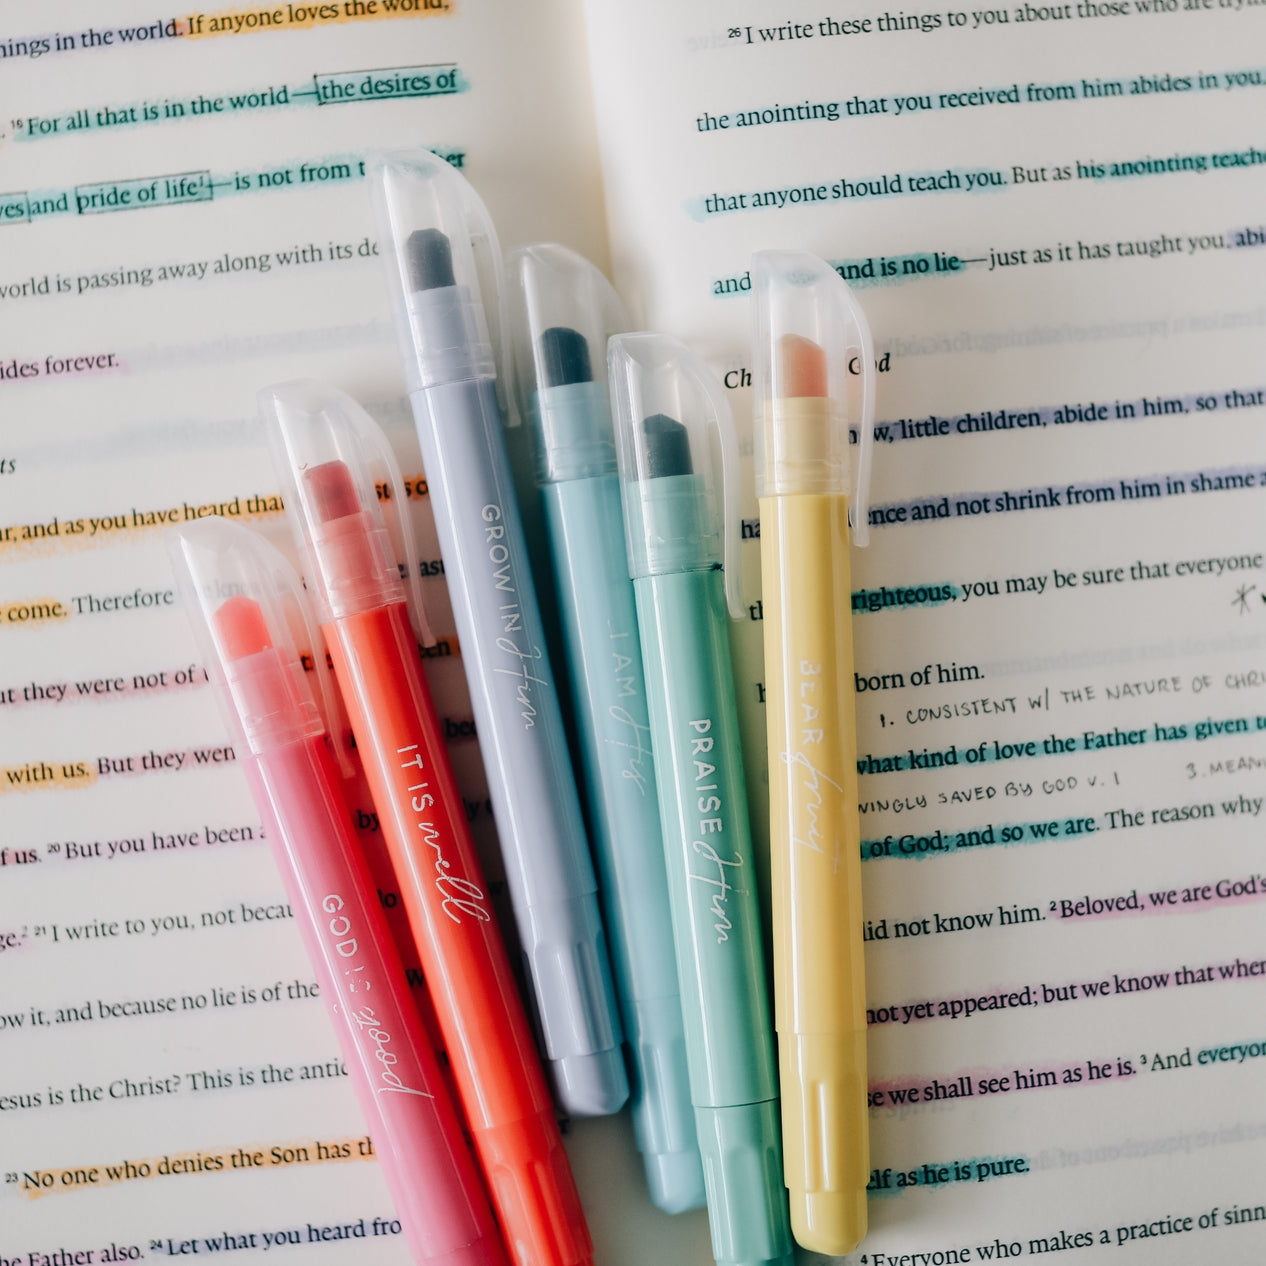 things in the world. If anyone loves the world,
16 For all that is in the world—the desires of
and pride of life—is not from t
world is passing away along with its de
forever.
and as you have heard that
come. Therefore
they were not of
with us. But they wen
of us. 20 But you have been
2 21 I write to you, not becau
it, and because no lie is of the
Jesus is the Christ? This is the antic
23 No one who denies the Son has th
the Father also. 24 Let what you heard fro
GOD IS good
IT IS well
GROW IN Him
I AM His
PRAISE Him
BEAR fruit
26 I write these things to you about those who are
the anointing that you received from him abides in you,
that anyone should teach you. But as his anointing teache
and and is no lie—just as it has taught you, abi
Ch God
little children, abide in him, so that
and not shrink from him in shame
righteous, you may be sure that everyone
born of him.
1. CONSISTENT W/ THE NATURE OF CHRI
what kind of love the Father has given
SAVED BY GOD V. 1 3. MEAN
of God; and so we are. The reason why
did not know him. 2 Beloved, we are God's
not yet appeared; but we know that when
we shall see him as he is. 3 And everyon
as he is pure.
4 Everyone who makes a practice of sinn